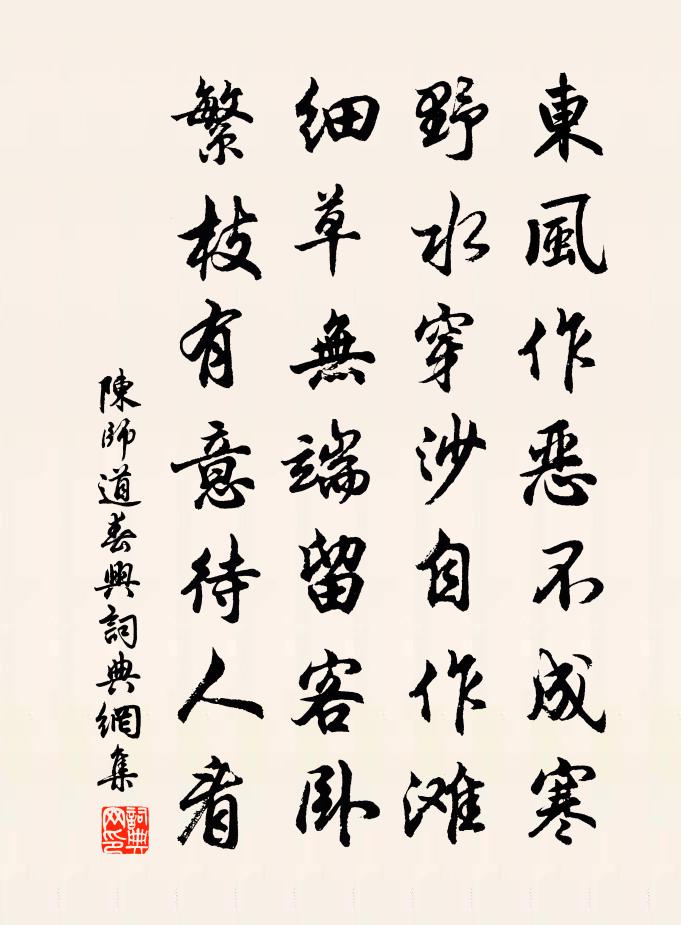 東風作惡不成寒
野水穿沙自作滩
細草無端留客卧
繁枝有意待人看
陳師道春興詞典網集
詞典网印